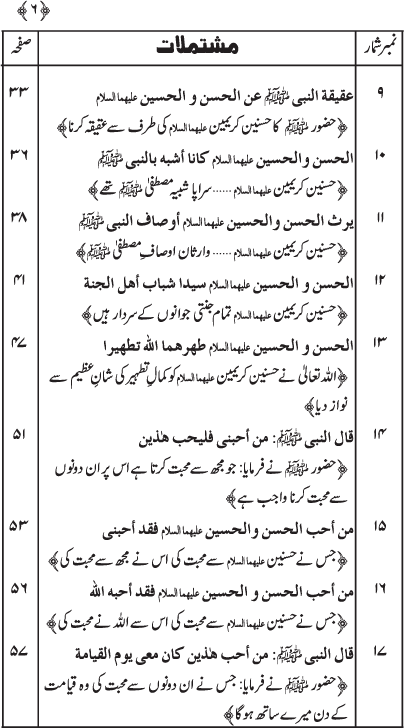 ﴿۶﴾
نمبر شمار مشتملات صفحہ
۹ عقیقة النبی ﷺ عن الحسن و الحسین علیهما السلام ۳۳
﴿حضور ﷺ کا حسنین کریمین علیهما السلام کی طرف سے عقیقہ کرنا﴾
۱۰ الحسن والحسین علیهما السلام كانا أشبه بالنبی ﷺ ۳۶
﴿حسنین کریمین علیهما السلام ...... سراپا شبیہِ مصطفیٰ ﷺ تھے﴾
۱۱ یرث الحسن والحسین علیهما السلام أوصاف النبی ﷺ ۳۸
﴿حسنین کریمین علیهما السلام ...... وارثان اوصافِ مصطفیٰ ﷺ﴾
۱۲ الحسن و الحسین علیهما السلام سیدا شباب أهل الجنة ۴۱
﴿حسنین کریمین علیهما السلام تمام جنتی جوانوں کے سردار ہیں﴾
۱۳ الحسن و الحسین علیهما السلام طهرهما الله تطهیرا ۴۷
﴿اللہ تعالیٰ نے حسنین کریمین علیهما السلام کو کمالِ تطہیر کی شانِ عظیم سے
نواز دیا﴾
۱۴ قال النبی ﷺ: من أحبنی فلیحب هذین ۵۱
﴿حضور ﷺ نے فرمایا: جو مجھ سے محبت کرتا ہے اس پر ان دونوں
سے محبت کرنا واجب ہے﴾
۱۵ من أحب الحسن والحسین علیهما السلام فقد أحبنی ۵۳
﴿جس نے حسنین علیهما السلام سے محبت کی اس نے مجھ سے محبت کی﴾
۱۶ من أحب الحسن و الحسین علیهما السلام فقد أحبه الله ۵۶
﴿جس نے حسنین علیهما السلام سے محبت کی اس سے اللہ نے محبت کی﴾
۱۷ قال النبی ﷺ: من أحب هذین كان معی یوم القیامة ۵۷
﴿حضور ﷺ نے فرمایا: جس نے ان دونوں سے محبت کی وہ قیامت
کے دن میرے ساتھ ہو گا﴾